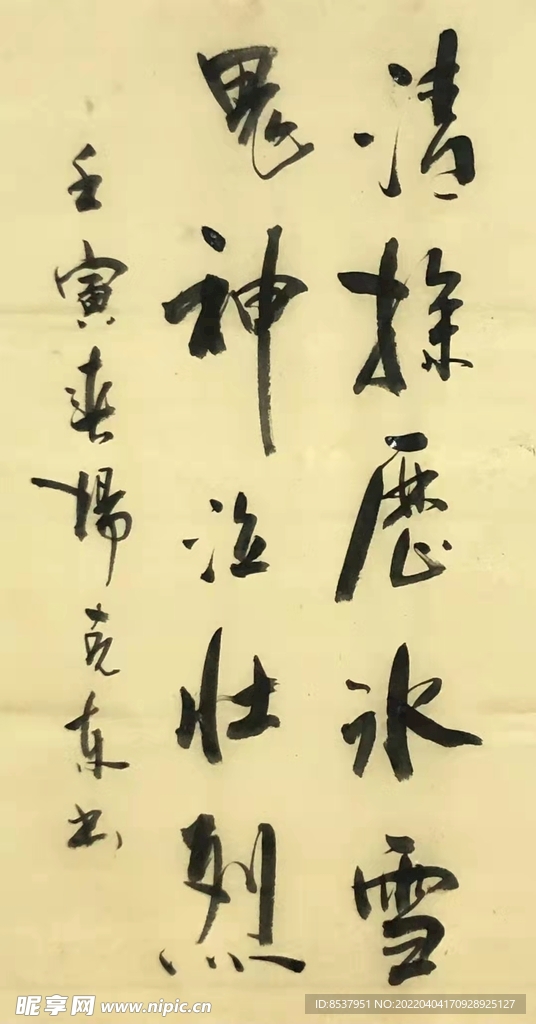 清操歷冰雪
鬼神泣壮烈
壬寅春楊克东书
昵享网 www.nipic.cn
ID:8537951 NO:20220404170928925127